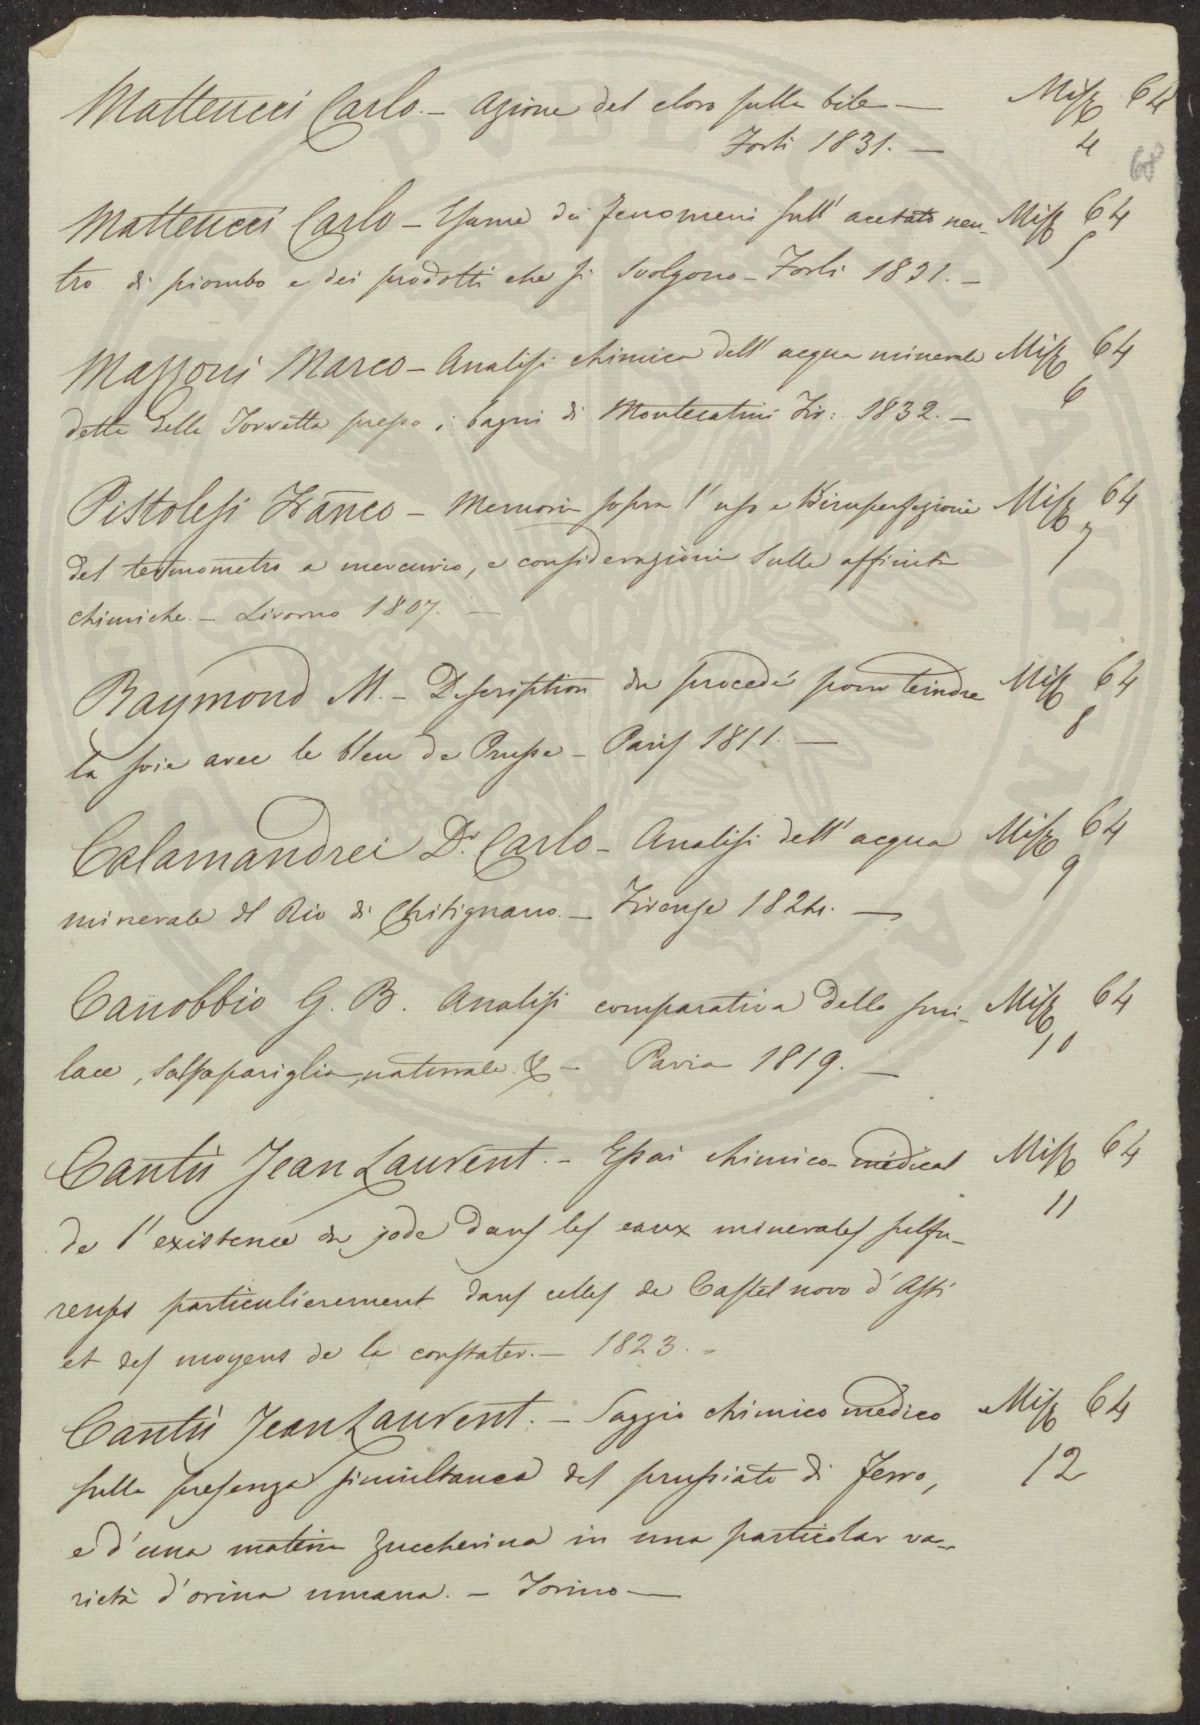 Matteucci Carlo. – Azione del cloro sulla bile — Misc 64
Forlì 1831. — 4
68
Matteucci Carlo – Esame dei fenomeni sull' acetato neu- Misc 64
tro di piombo e dei prodotti che si svolgono – Forlì 1831. – 5
Mazzoni Marco – Analisi chimica dell' acqua minerale Misc 64
detta della Torretta presso i bagni di Montecatini Fir: 1832. – 6
Pistolesi Franco – Memoria sopra l' uso e l'imperfezione Misc 64
del termometro a mercurio, e considerazioni sulle affinità 7
chimiche. – Livorno 1807. —
Raymond M. – Description du procedé pour teindre Misc 64
la soie avec le bleu de Prusse – Paris 1811. — 8
Calamandrei Dr. Carlo – Analisi dell' acqua Misc 64
minerale del Rio di Chitignano. – Firenze 1824. — 9
Canobbio G. B. Analisi comparativa della smi- Misc 64
lace, salsapariglia, naturale. & – Pavia 1819. — 10
Cantù Jean Laurent. – Essai chimico-médical Misc 64
de l'existence du jode dans les eaux minerales sulfu- 11
reuses particulierement dans celles de Castelnovo d'Asti
et des moyens de la constater. – 1823. –
Cantù Jean Laurent. – Saggio chimico medico Misc 64
sulla presenza simultanea del prussiato di ferro, 12
e d'una materia zuccherina in una particolar va-
rietà d'orina umana. – Torino —